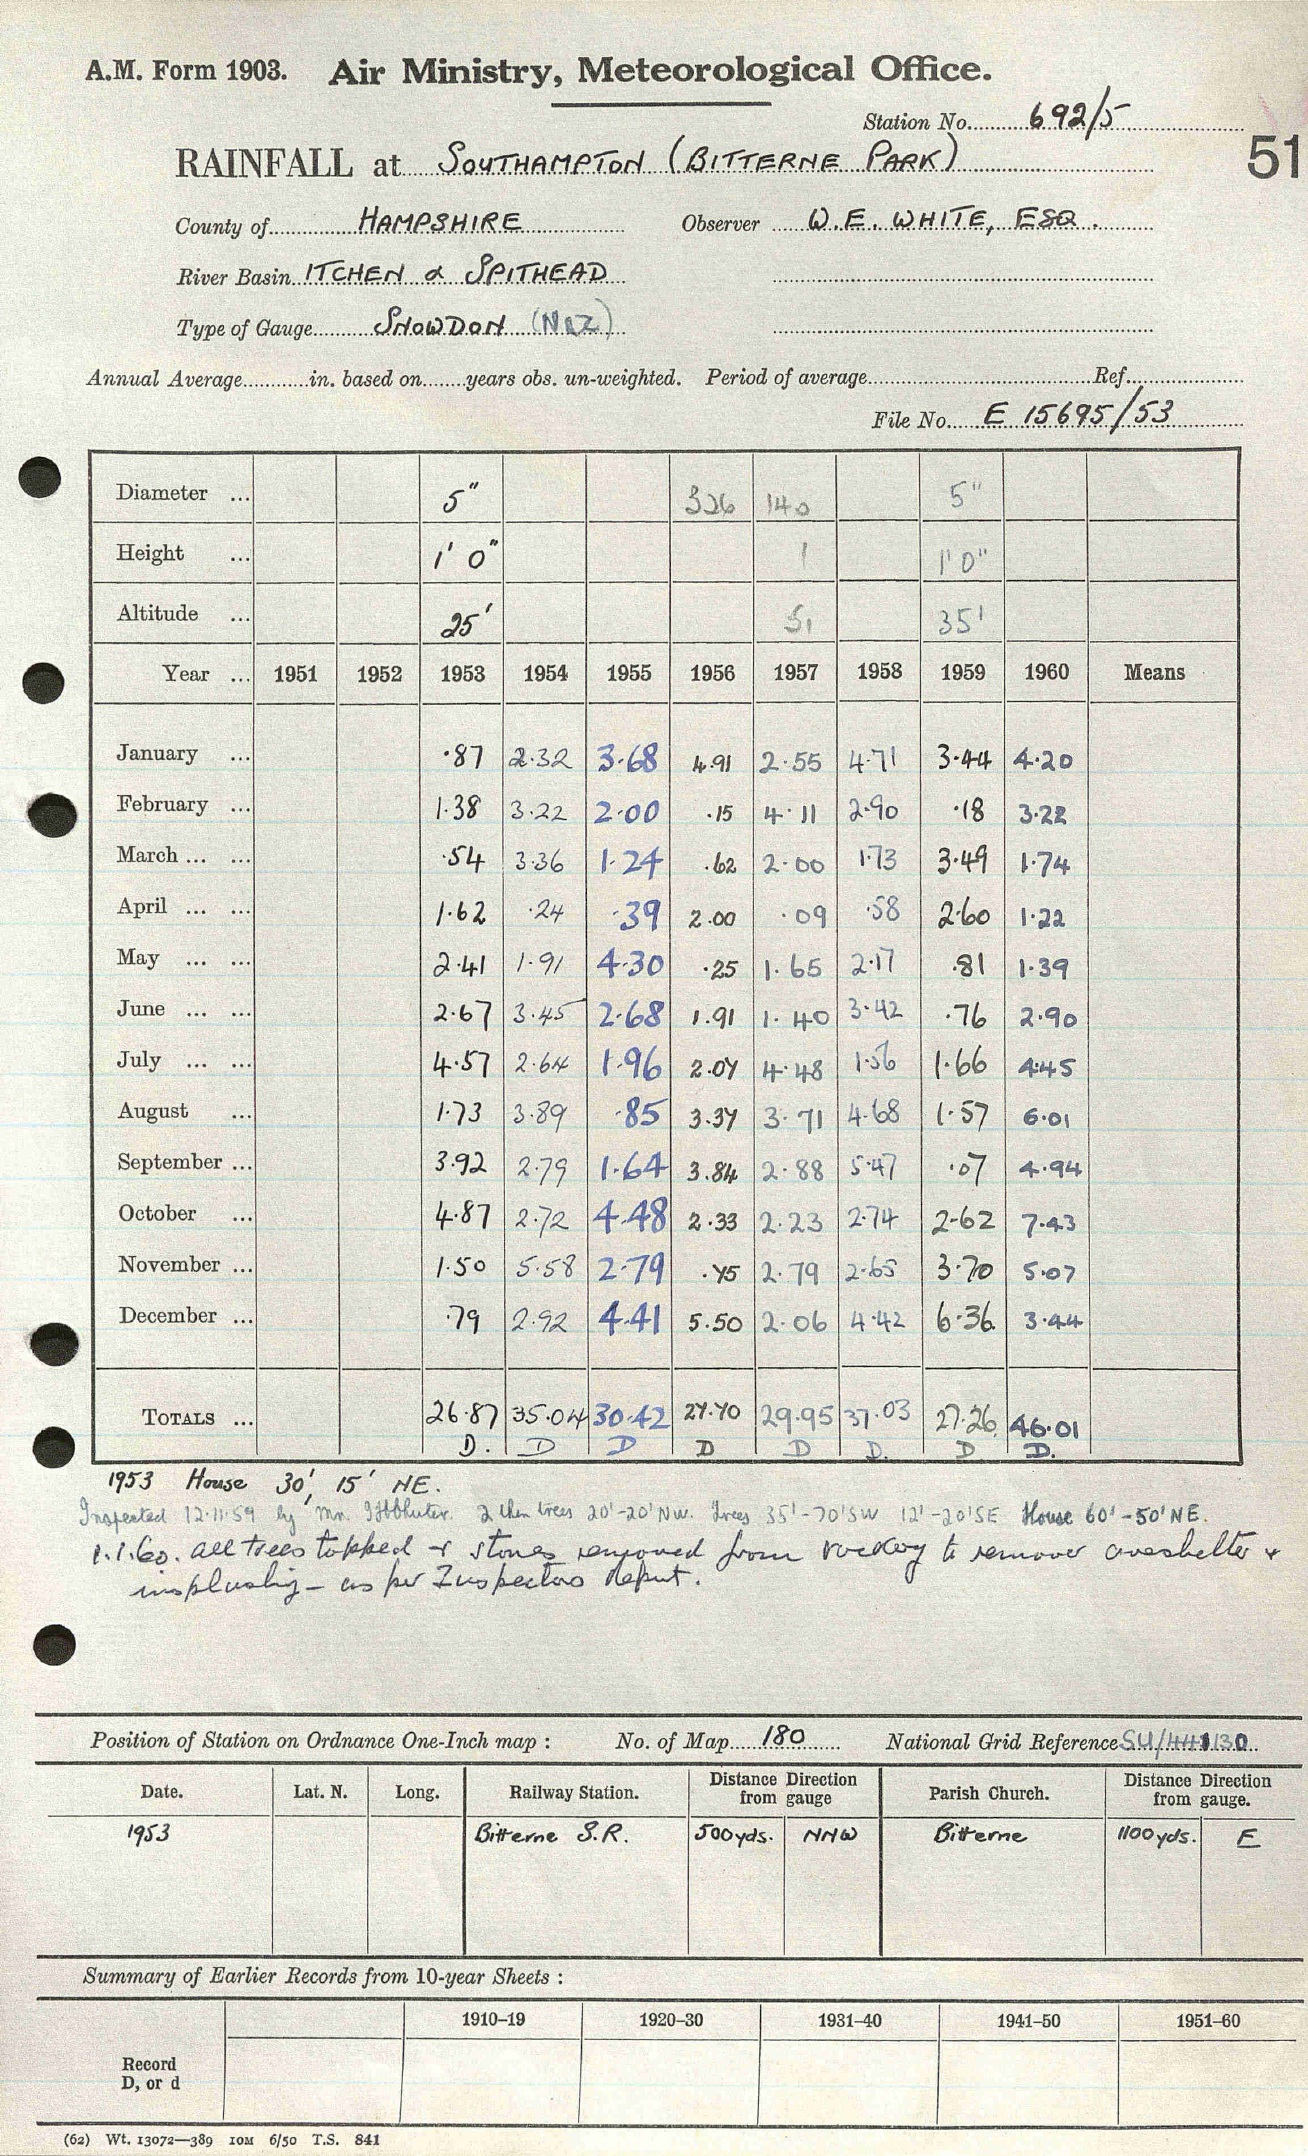 A.M. Form 1903. Air Ministry, Meteorological Office.
Station No. 692/5
RAINFALL at SOUTHAMPTON (BITTERNE PARK)
51
County of HAMPSHIRE Observer W.E. WHITE, ESQ.
River Basin ITCHEN & SPITHEAD
Type of Gauge SNOWDON
Annual Average in. based on years obs. un-weighted. Period of average Ref.
File No. E 15695/53
Diameter ... 5" 326 140 5"
Height ... 1' 0" 1 1' 0"
Altitude ... 25' 51 35'
Year ... 1951 1952 1953 1954 1955 1956 1957 1958 1959 1960 Means
January ... ·87 2·32 3·68 4.91 2·55 4·71 3·44 4·20
February ... 1·38 3·22 2·00 ·15 4·11 2·90 ·18 3·22
March ... ... ·54 3·36 1·24 ·62 2·00 1·73 3·49 1·74
April ... ... 1·62 ·24 ·39 2·00 ·09 ·58 2·60 1·22
May ... ... 2·41 1·91 4·30 ·25 1·65 2·17 ·81 1·39
June ... ... 2·67 3·45 2·68 1.91 1·40 3·42 ·76 2·90
July ... ... 4·57 2·64 1·96 2·07 4·48 1·56 1·66 4·45
August ... 1·73 3·89 ·85 3·37 3·71 4·68 1·57 6·01
September ... 3.92 2·79 1·64 3.84 2·88 5·47 ·07 4·94
October ... 4·87 2·72 4·48 2·33 2·23 2·74 2·62 7·43
November ... 1·50 5·58 2·79 ·75 2·79 2·65 3·70 5·07
December ... ·79 2·92 4·41 5·50 2·06 4·42 6·36 3·44
TOTALS ... 26·87 35·04 30·42 27·70 29·95 37·03 27·26 46·01
D. D D D D D. D D.
1953 House 30', 15' NE.
Inspected 12·11·59 by Mr. 2 thin trees 20'-20' NW. Trees 35'-70' SW 12'-20' SE House 60'-50' NE.
1.1.60. all trees topped & stones removed from rockery to remove overshelter &
insplashing - as per Inspectors report.
Position of Station on Ordnance One-Inch map : No. of Map 180 National Grid Reference SU/441130
Date. Lat. N. Long. Railway Station. Distance Direction from gauge Parish Church. Distance Direction from gauge.
1953 Bitterne S.R. 500yds. NNW Bitterne 1100yds. E
Summary of Earlier Records from 10-year Sheets :
1910–19 1920–30 1931–40 1941–50 1951–60
Record
D, or d
(62) Wt. 13072—389 10M 6/50 T.S. 841